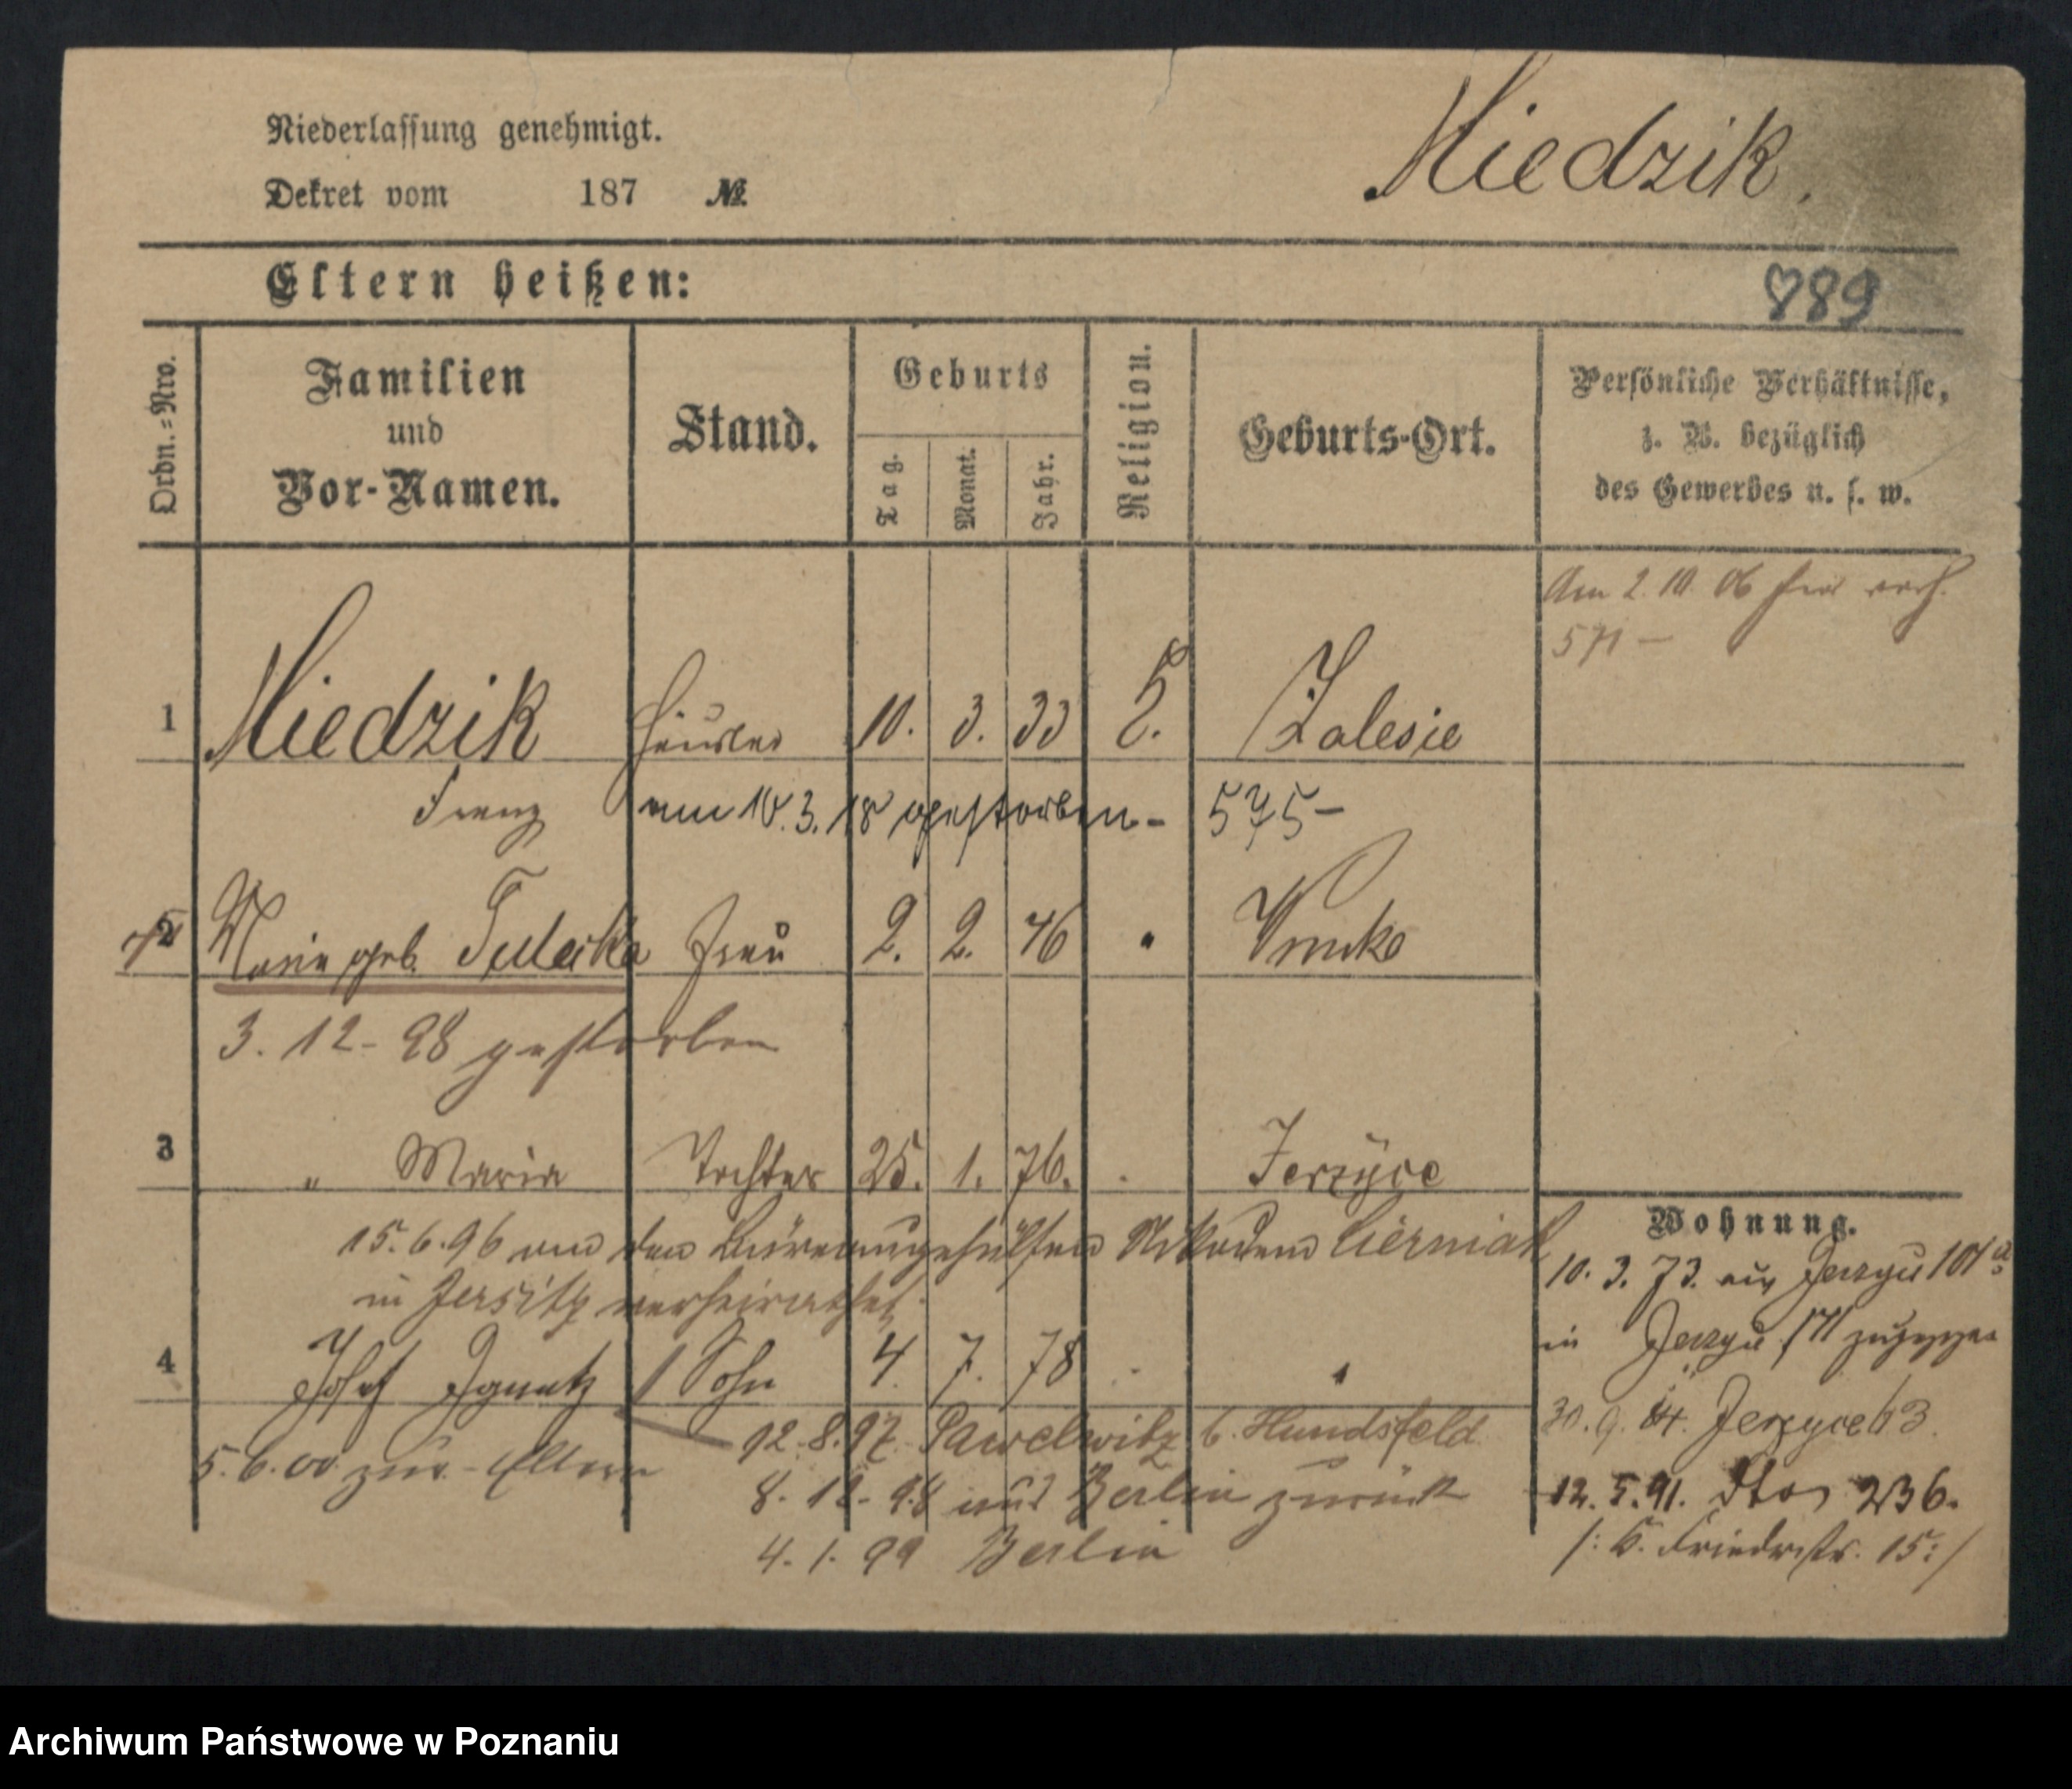 Niederlassung genehmigt.
Miedzik.
Dekret vom 187 №
Eltern heißen:
889
Ordn.=Nro.
Familien und Vor-Namen.
Stand.
Geburts
Tag.
Monat.
Jahr.
Religion.
Geburts-Ort.
Persönliche Verhältnisse,
z. B. bezüglich
des Gewerbes u. s. w.
Am 2. 10. 06
571 —
1 Miedzik Häusler 10. 3. 33 Zalesie
Franz am 10. 3. 18 gestorben - 575 -
2 Marie geb. Frau 2. 2. 46 "
3. 12 - 98 gestorben
3 " Maria Tochter 25. 1. 76. . Jerzyce
Wohnung.
15. 6. 96 an den Büreaugehülfen Nikodem Cierniak
in Jersitz verheirathet.
10. 3. 73. aus Jerzyce 101a
in Jerzyce 171 zugezogen
4 Josef Ignatz Sohn 4. 7. 78 . "
12. 8. 97 Pawelwitz b. Hundsfeld
30. 9. 84. Jerzyce 63.
5. 6. 00 zur. - Eltern
8. 12. 98 aus Berlin zurück
12. 5. 91. 236.
4. 1. 99 Berlin
/: K. Friedrstr. 15 :/
Archiwum Państwowe w Poznaniu